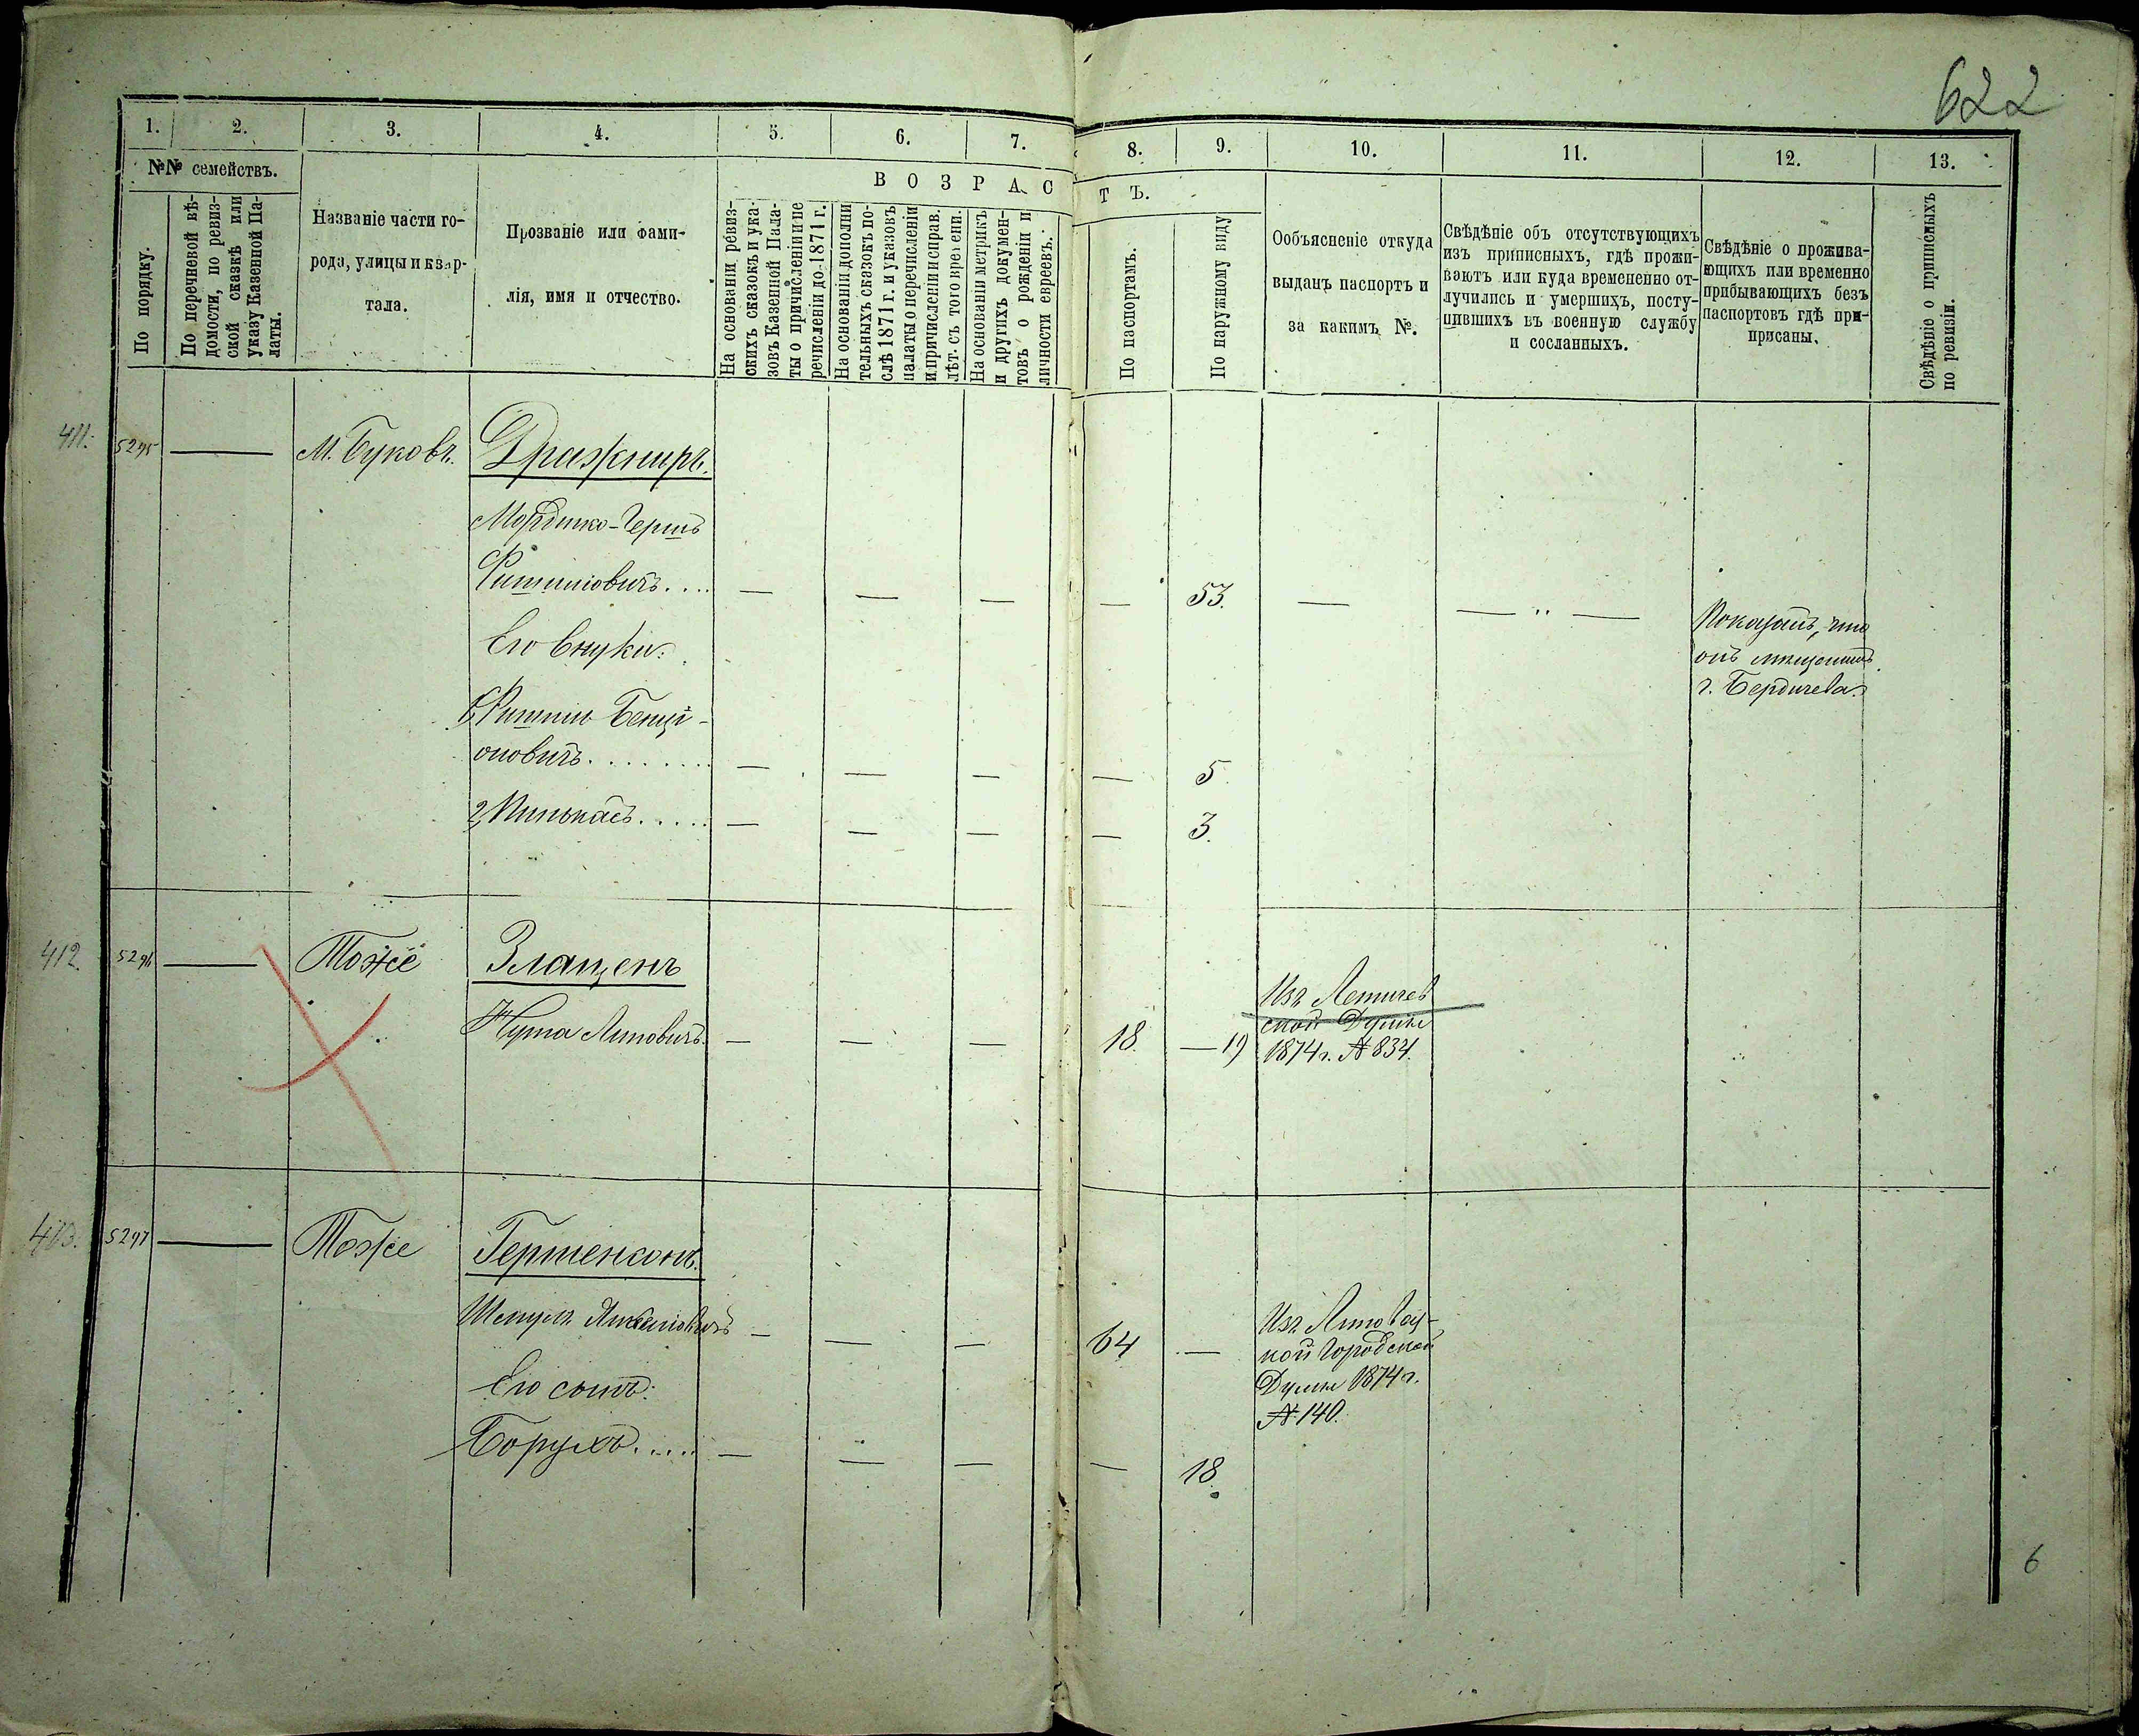 622
1. 2. 3. 4. 5. 6. 7. 8. 9. 10. 11. 12. 13.
№№ семействъ.
По порядку.
По перечневой вѣ-
домости, по ревиз-
ской сказкѣ или
указу Казенной Па-
латы.
Названіе части го-
рода, улицы и квар-
тала.
Прозваніе или фами-
лія, имя и отчество.
ВОЗРАСТЪ.
На основаніи ревиз-
скихъ сказокъ и ука-
зовъ Казенной Пала-
ты о причисленіи и пе
речисленіи до 1871 г.
На основаніи дополни
тельныхъ сказокъ по-
слѣ 1871 г. и указовъ
палаты о перечисленіи
и причисленіи и справ.
лѣт. съ того времени.
На основаніи метрикъ
и другихъ докумен-
товъ о рожденіи и
личности евреевъ.
По паспортамъ.
По наружному виду
Ообъясненіе откуда
выданъ паспортъ и
за какимъ №.
Свѣдѣніе объ отсутствующихъ
изъ приписныхъ, гдѣ прожи-
ваютъ или куда временно от-
лучились и умершихъ, посту-
пившихъ въ военную службу
и сосланныхъ.
Свѣдѣніе о прожива-
ющихъ или временно
прибывающихъ безъ
паспортовъ гдѣ при-
присаны.
Свѣдѣніе о приписныхъ
по ревизіи.
411. 5295 — М. Буковъ. Дражниръ.
Мордко-Гершъ
Фишілювичъ.... — — — — 53. — — " —
Показалъ, что
онъ мѣщанинъ
г. Бердичева.
Его внуки:
1, Фишіль Бенці-
оновичъ........ — — — — 5.
2, Пинькасъ..... — — — — 3.
412. 5296 — Тоже Злащенъ
Нута Липовичъ. — — — 18. — 19
Изъ Летичев
ской Думы
1874 г. № 834.
413. 5297 — Тоже Гершенконъ.
Шмуль Янкелювичъ — — — 64 —
Изъ Липовец-
кой Городской
Думы 1874 г.
№ 140.
Его сынъ:
Борухъ..... — — — — 18.
6